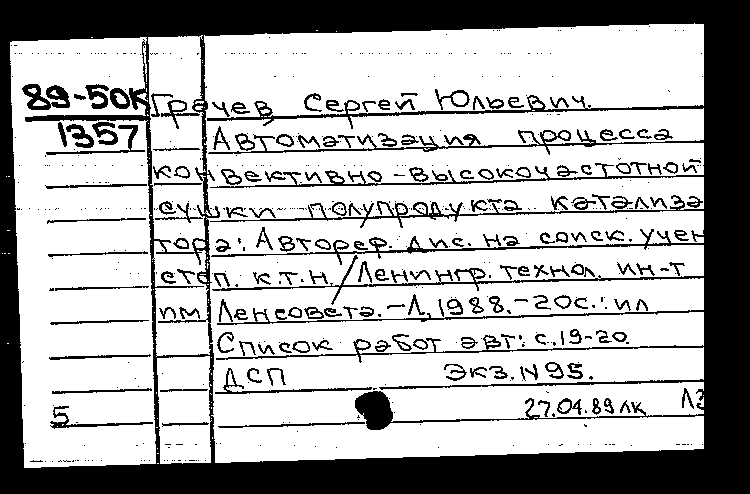 89-50К Грачев Сергей Юльевич.
1357 Автоматизация процесса
конвективно-высокочастотной
сушки полупродукта катализа
тора: Автореф. дис. на соиск. учен
степ. к.т.н./Ленингр. технол. ин-т
им Ленсовета.-Л, 1988.-20с.: ил
Список работ авт: с.19-20
ДСП Экз. N 95.
5 27.04.89 лк